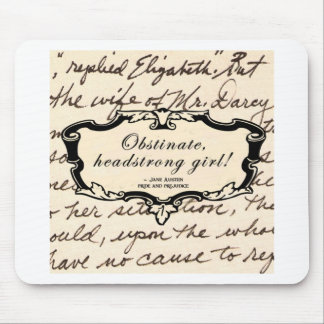 ", replied Elizabeth. "But
the wife of Mr. Darcy
Obstinate,
headstrong girl!
~ Jane Austen
PRIDE AND PREJUDICE
to her situation, the
ould, upon the who
have no cause to rep